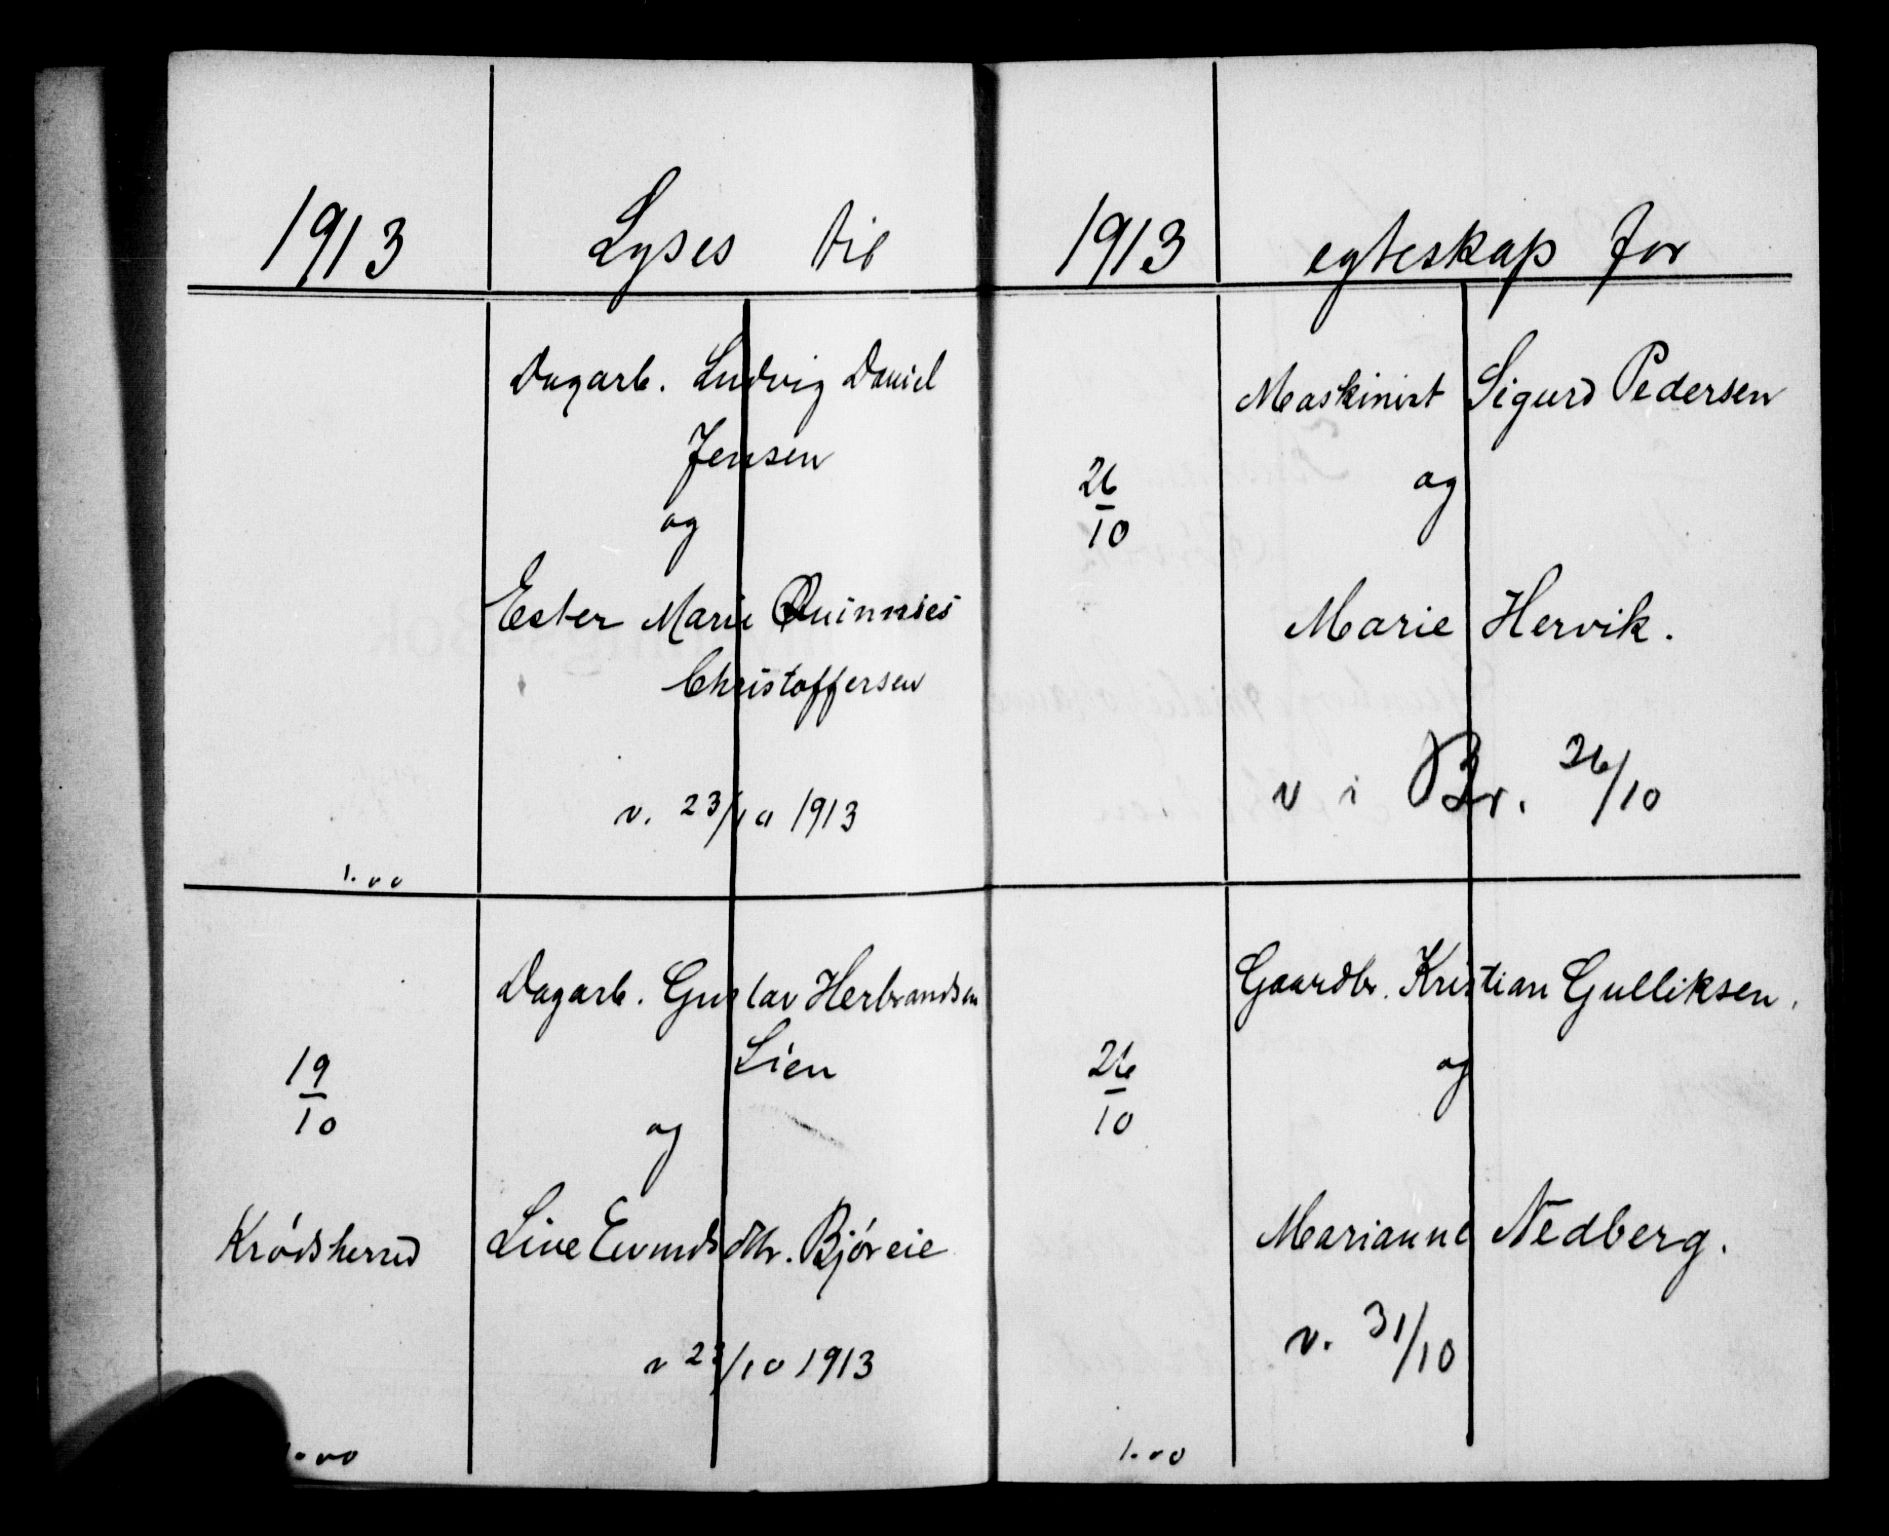 1913 Lyses til
Dagarb. Ludvig Daniel
Jensen
og
Ester Marie
Christoffersen
v. 23/10 1913
1.00
Dagarb. Gustav Herbrandsen
Lien
19/10
og
Krødsherred Live Evindsdtr. Bjøreie
v 23/10 1913
1.00
1913 egteskap for
Maskinist Sigurd Pedersen
26/10 og
Marie Hervik.
v i Br. 26/10
Gaardbr. Kristian Gulliksen.
26/10 og
Marianne Nedberg.
v. 31/10
1.00